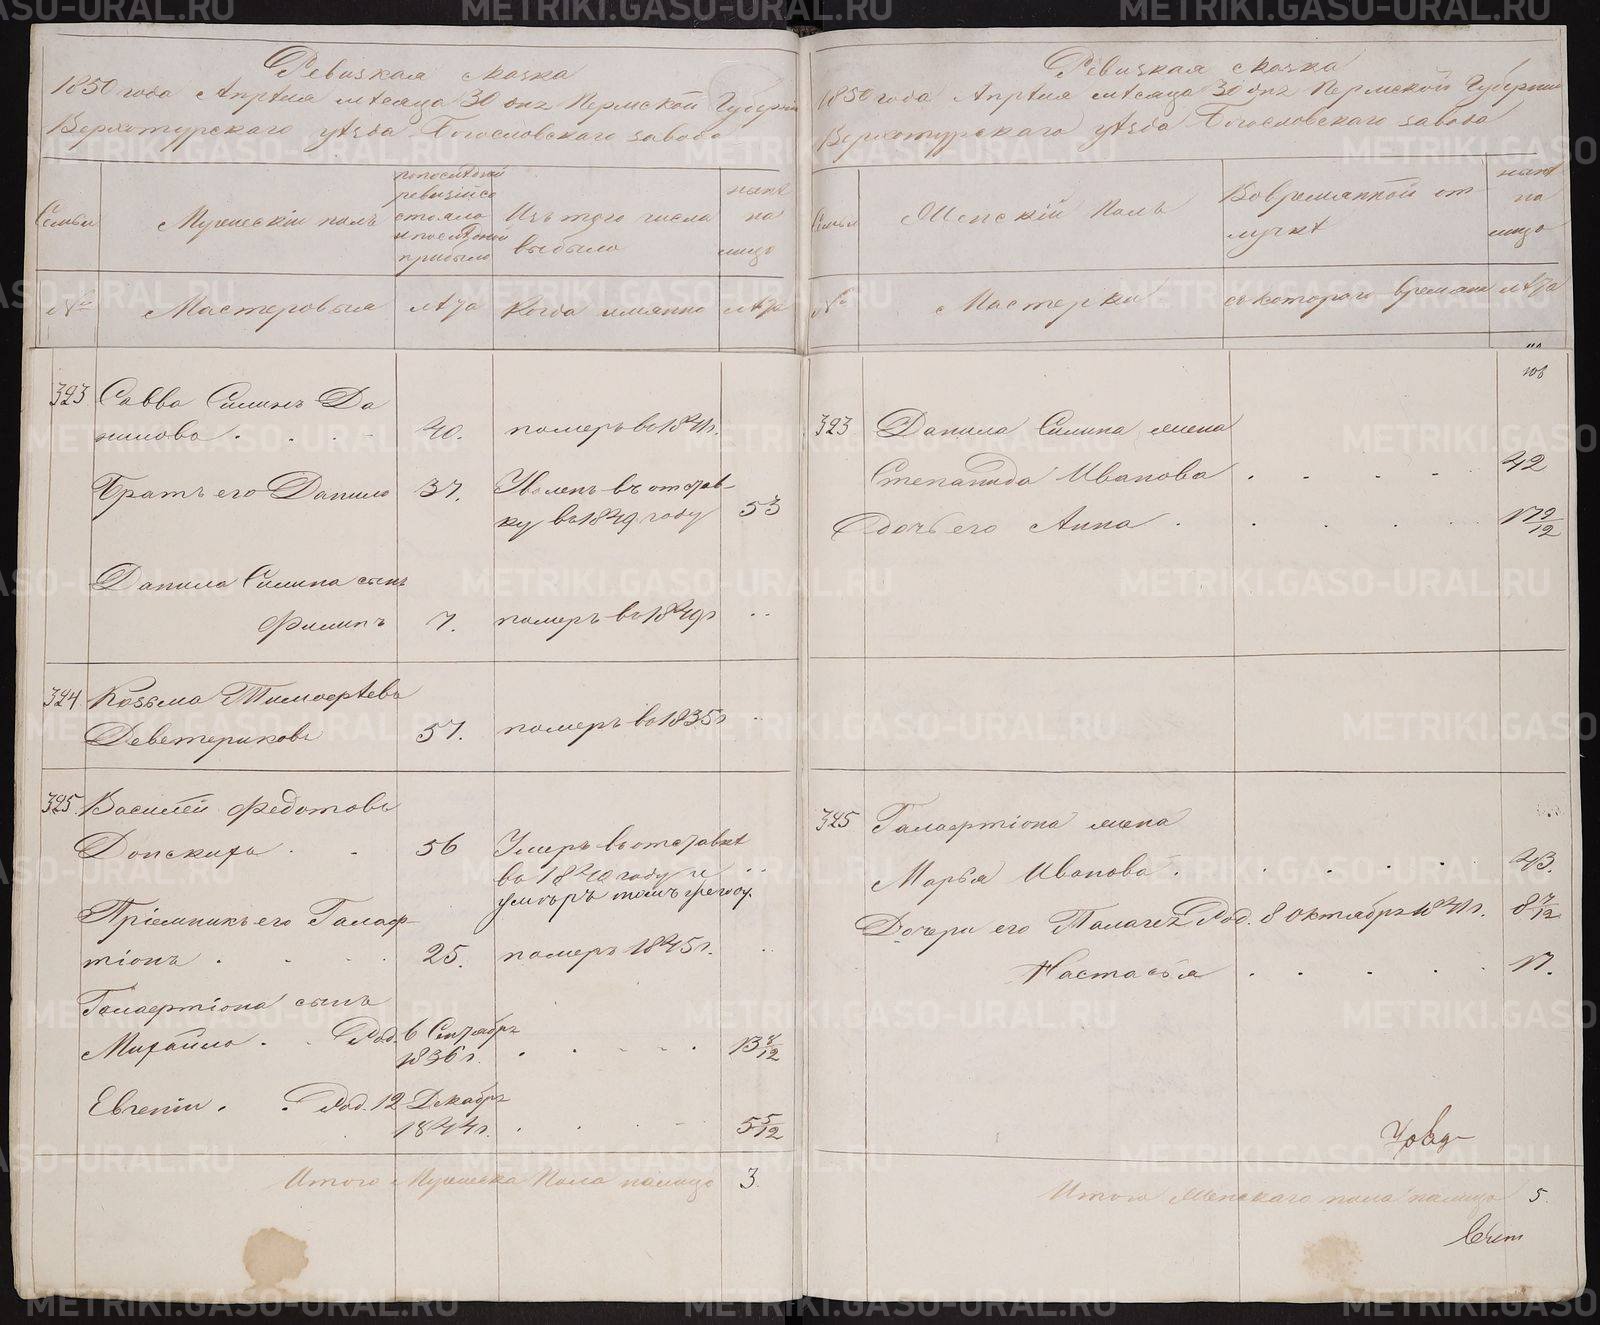 Ревизкая сказка
1850 года Апреля месяца 30 дня Пермской Губернии
Верхотурскаго уезда Богословскаго завода
Семьи
Мужескій полъ
по последней
ревизіи со
стояло
и после оной
прибыло
Изъ того числа
выбыло
ныне
на
лицо
№
Мастеровыя
лета
Когда имянно
лета
323 Савва Силинъ Да
нилова . . . 40. померъ въ 1841 г.
Братъ его Данило 37. Уволенъ въ отстав-
ку въ 1849 году 53
Данила Силина сынъ
Филипъ 7. померъ въ 1849 г ..
324 Козьма Тимофеевъ
Деветериковъ 57. померъ въ 1835 г ..
325. Василей Федотовъ
Донскихъ . . 56 Умеръ въ отставке
въ 1840 году и ..
умеръ томъ же году.
Пріемникъ его Галаф-
тіонъ . . . . 25. померъ 1845 г. ..
Галафтіона сынъ
Михайло . . Род. 6 Сентября
1836 г. . . . . . 13 8/12
Евгеніи . . Род. 12 Декабря
1844 г. . . . . 5 5/12
Итого Мужеска Пола налицо 3.
Ревизкая сказка
1850 года Апреля месяца 30 дня Пермской Губернии
Верхотурскаго уезда Богословскаго завода
Семьи
Женскій Полъ
Во временной от
лучке
ныне
на
лицо
№
Мастерки
съ котораго времяни
лета
323 Данила Силина жена
Степанида Иванова . . . . . 42
Дочь его Анна . . . . . . 17 9/12
325 Галафтіона жена
Марья Иванова . . . . . 43.
Дочери его Палагея Род. 8 Октября 1841 г. 8 7/12
Настасья . . . . . . 17.
Итого Женскаго пола налицо 5.